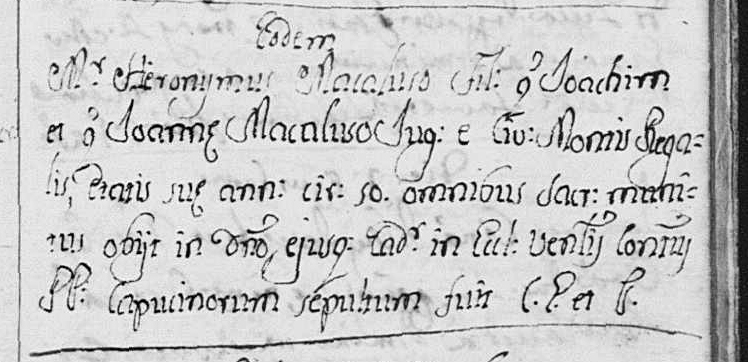 Eodem
Mr Hieronymus Macaluso Fil: q: Joachim
et q: Joannę Macaluso Jug: e Civ: Montis Regа=
lis, ętatis suę ann: cir: 50. omnibus sacr: muni=
tus obijt in Dno, ejusq: Cadr in Eccl: Venlij Contus
PP: Capucinorum sepultum fuit C. P. et F.